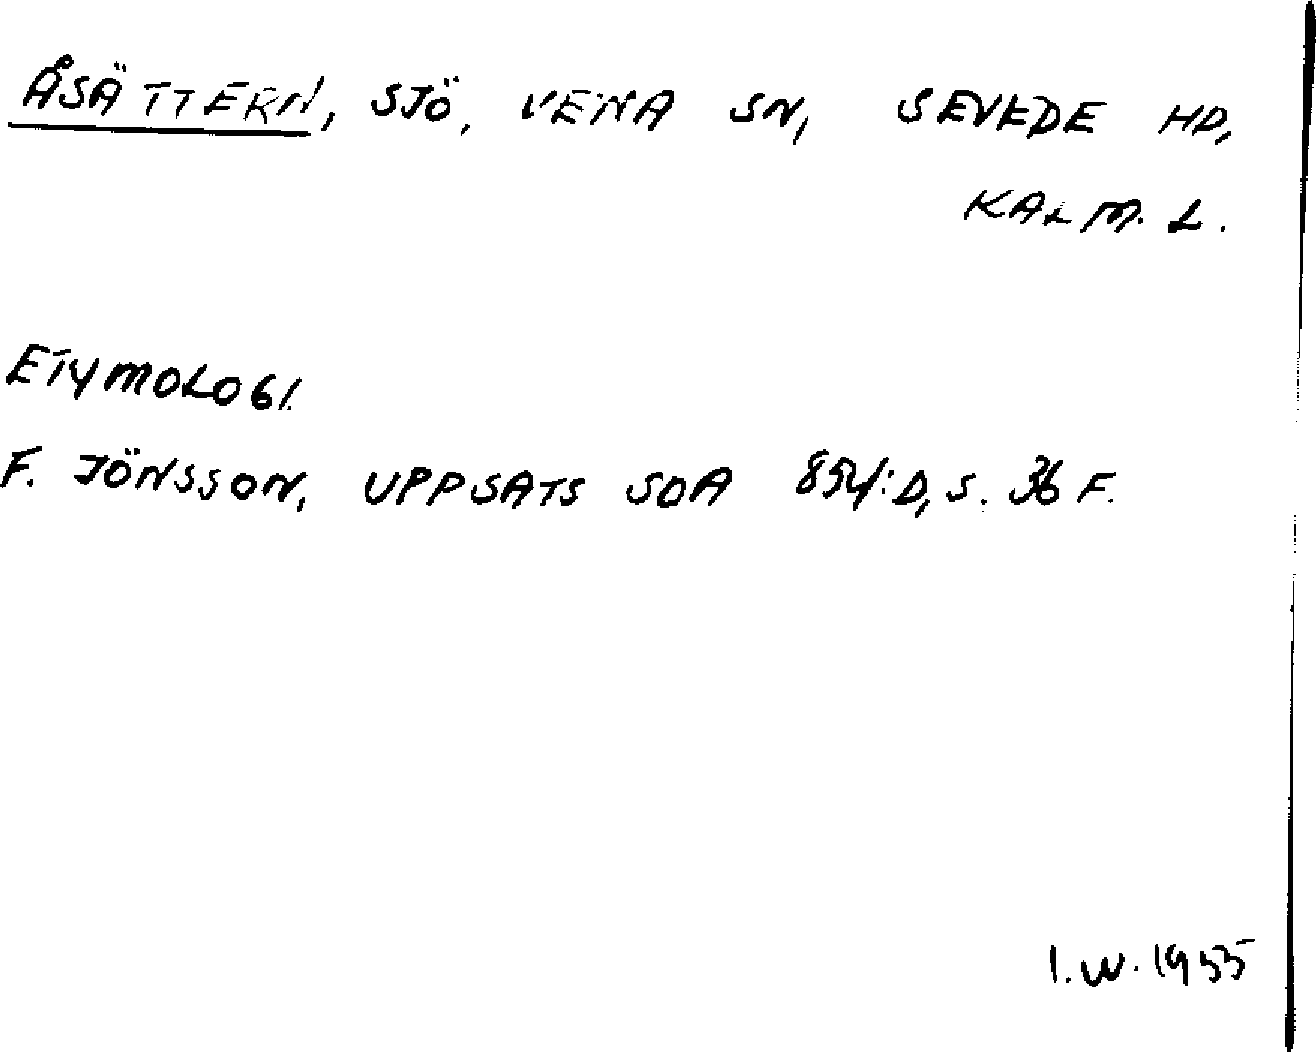 ÅSÄTTERN, SJÖ, VENA SN, SEVEDE HD,
KALM. L.
ETYMOLOGI.
F. JÖNSSON, UPPSATS SOA 854:D, S. 36 F.
I.W. 1955